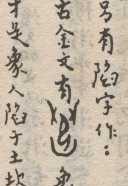 另有陷字作：
古金文有
才是象人陷于土坎